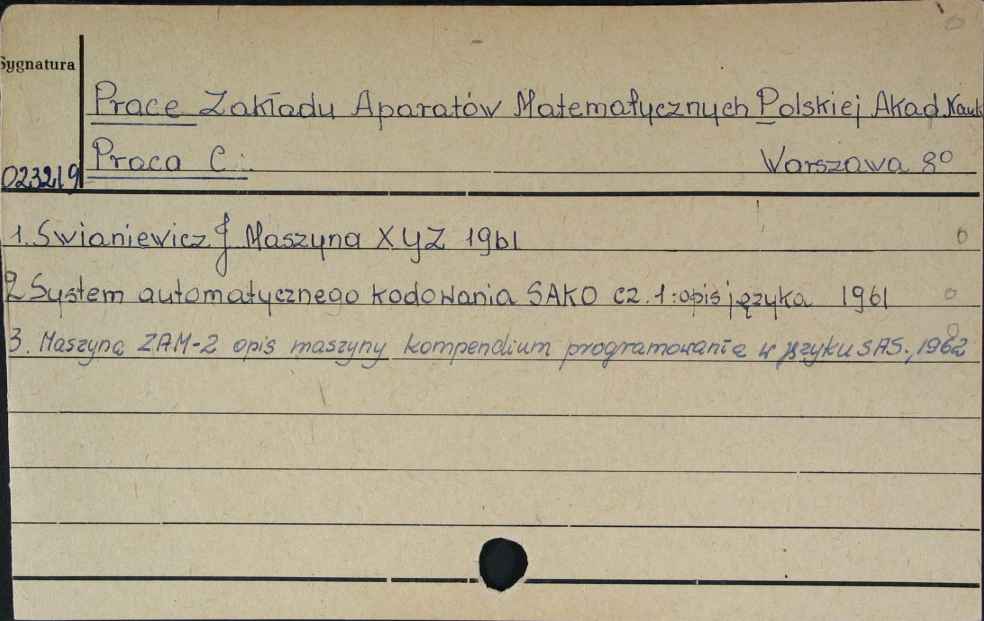 Sygnatura
Prace Zakładu Aparatów Matematycznych Polskiej Akad. Nauk
Praca C.
Warszawa 8°
023219
1. Swianiewicz J Maszyna XYZ 1961
2 System automatycznego kodowania SAKO cz. 1: opis języka 1961
3. Maszyna ZAM-2 opis maszyny kompendium programowanie w języku SAS., 1962